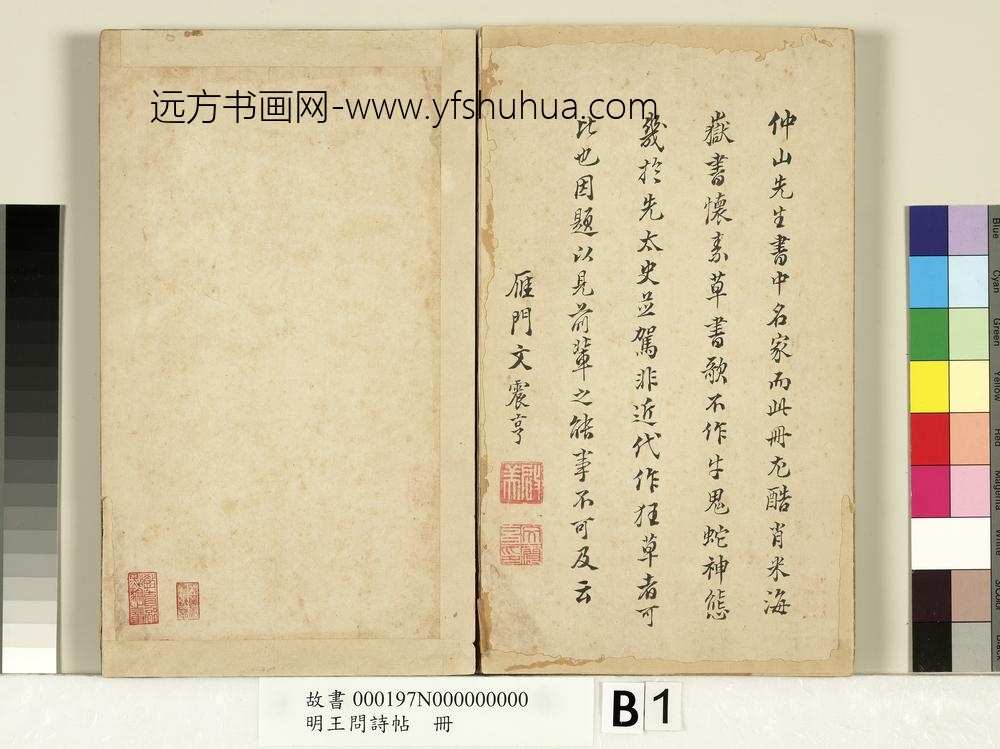 远方书画网-www.yfshuhua.com
仲山先生書中名家而此冊尤酷肖米海
嶽書懷素草書歌不作牛鬼蛇神態
幾於先太史並駕非近代作狂草者可
比也因題以見前輩之能事不可及云
雁門文震亨
故書 000197N000000000
明王問詩帖 冊
B 1
Blue
Cyan
Green
Yellow
Red
Magenta
White
3/Color
Black